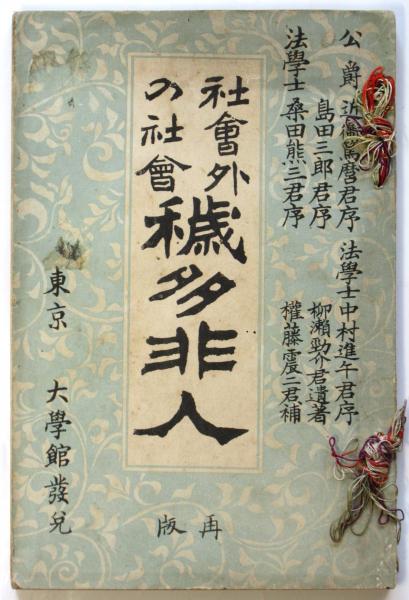 公爵 近衞篤麿君序 法學士中村進午君序
島田三郎君序 柳瀬勁介君遺著
法學士 桑田熊三君序 權藤震二君補
社會外
の社會
穢多非人
東京 大學館發兌
再版